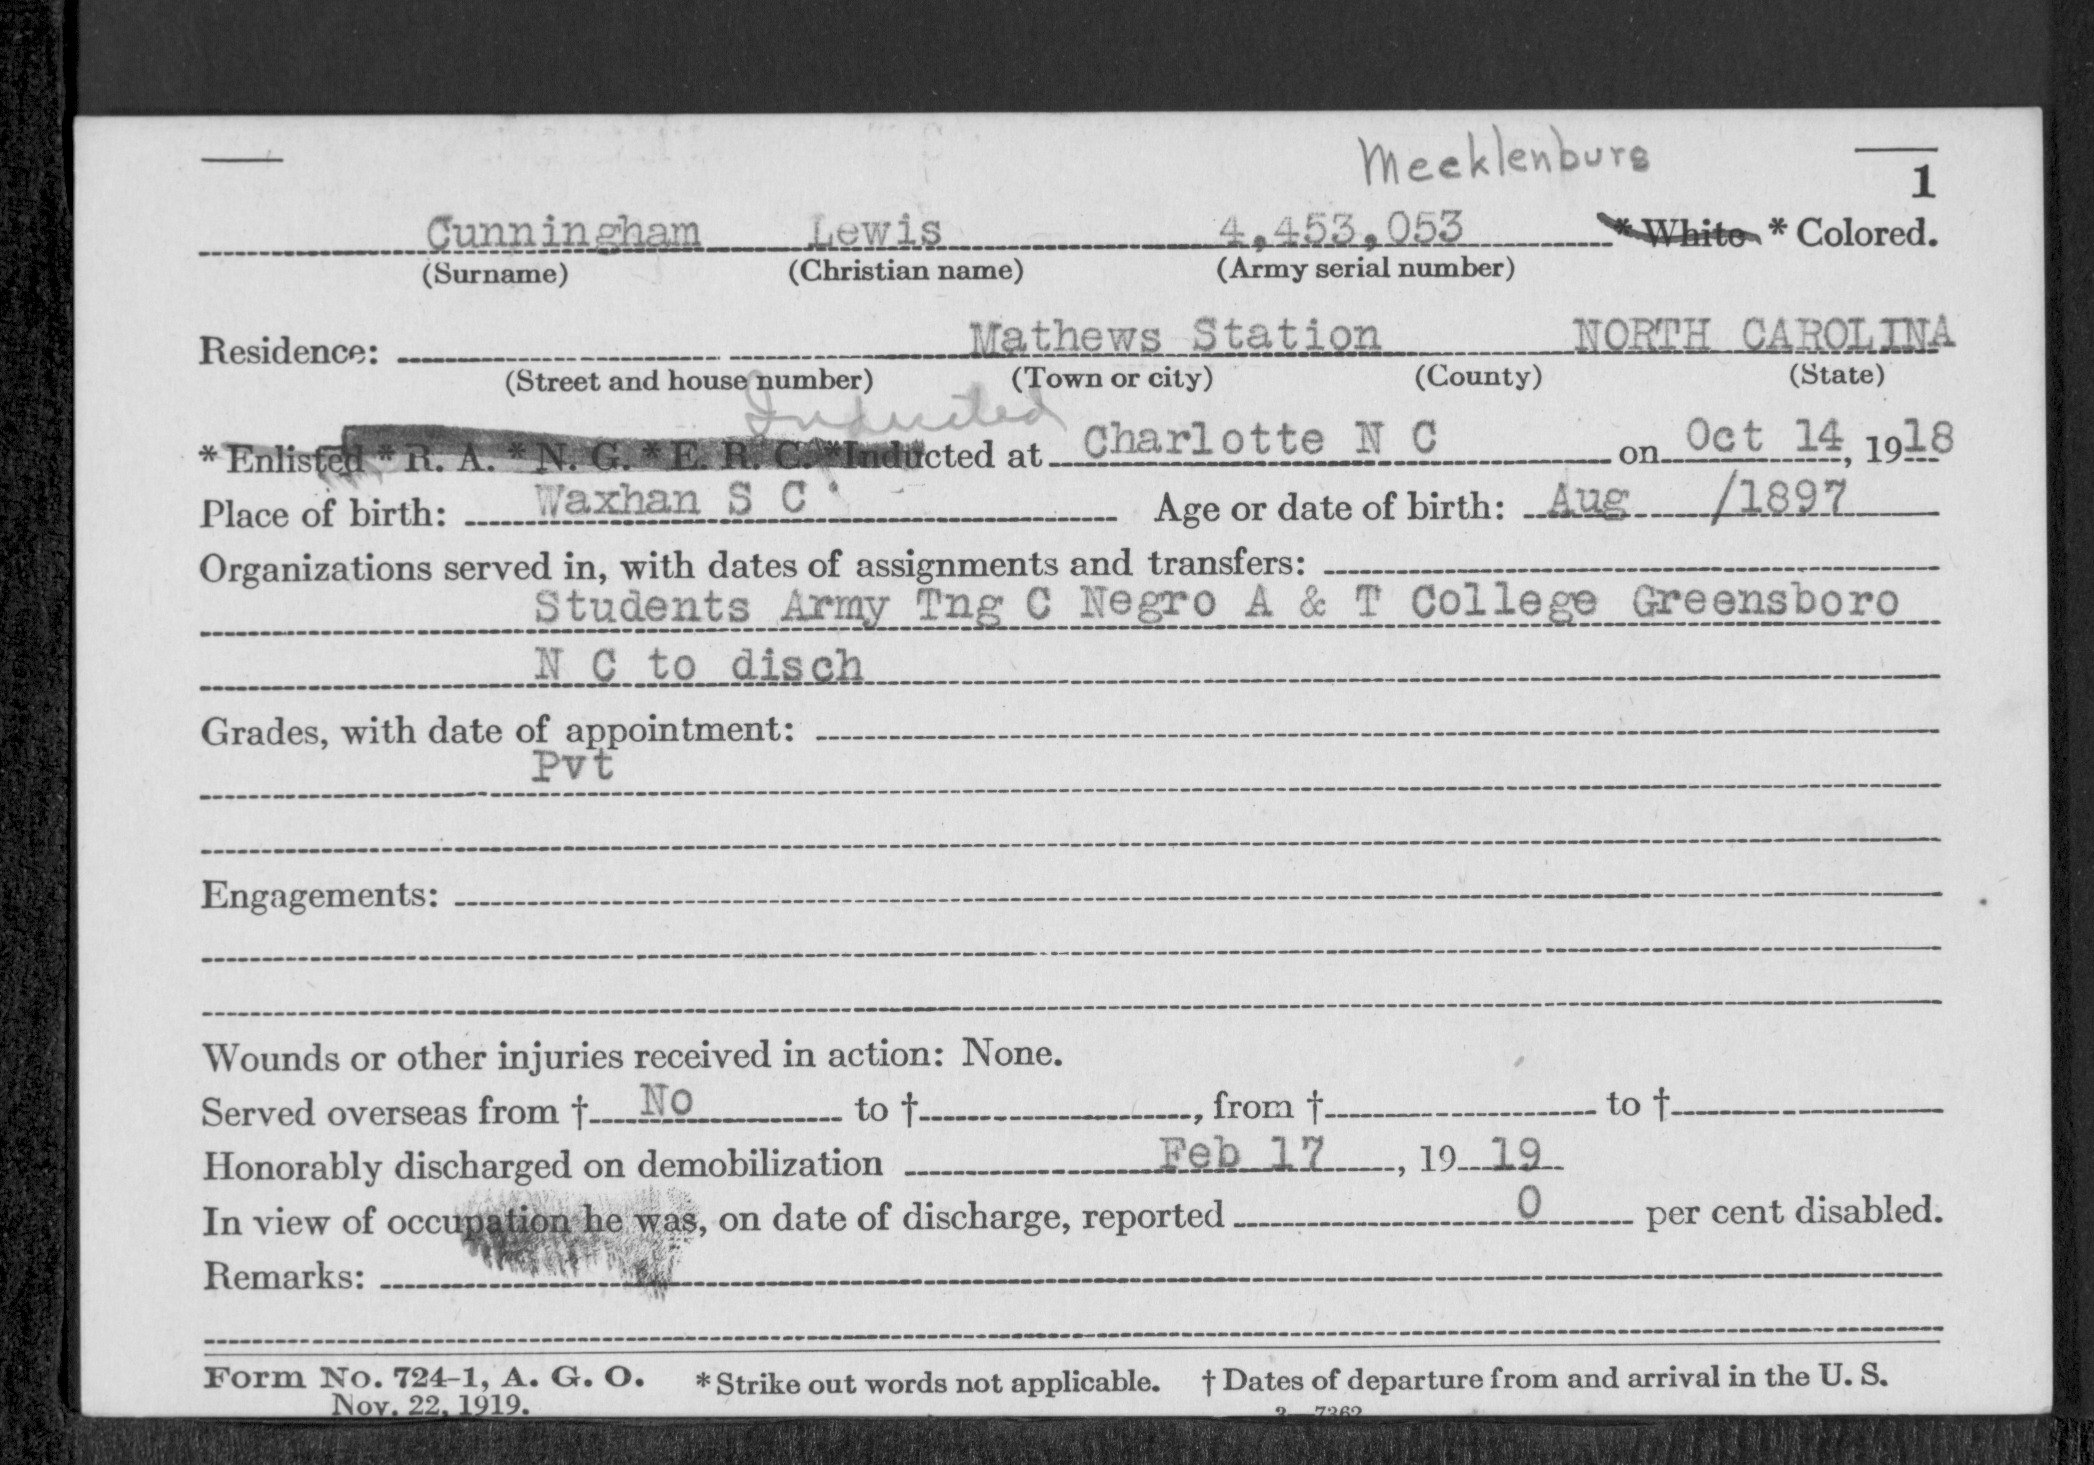 Mecklenburg
1
Cunningham Lewis 4,453,053 * White * Colored.
(Surname) (Christian name) (Army serial number)
Residence: Mathews Station NORTH CAROLINA
(Street and house number) (Town or city) (County) (State)
Inducted
* Enlisted * R. A. * N. G. * E. R. C. * Inducted at Charlotte N C on Oct 14, 1918
Place of birth: Waxhan S C Age or date of birth: Aug /1897
Organizations served in, with dates of assignments and transfers:
Students Army Tng C Negro A & T College Greensboro
N C to disch
Grades, with date of appointment:
Pvt
Engagements:
Wounds or other injuries received in action: None.
Served overseas from † No to †, from † to †
Honorably discharged on demobilization Feb 17, 19 19
In view of occupation he was, on date of discharge, reported 0 per cent disabled.
Remarks:
Form No. 724-1, A. G. O. * Strike out words not applicable. † Dates of departure from and arrival in the U. S.
Nov. 22, 1919. 3—7362